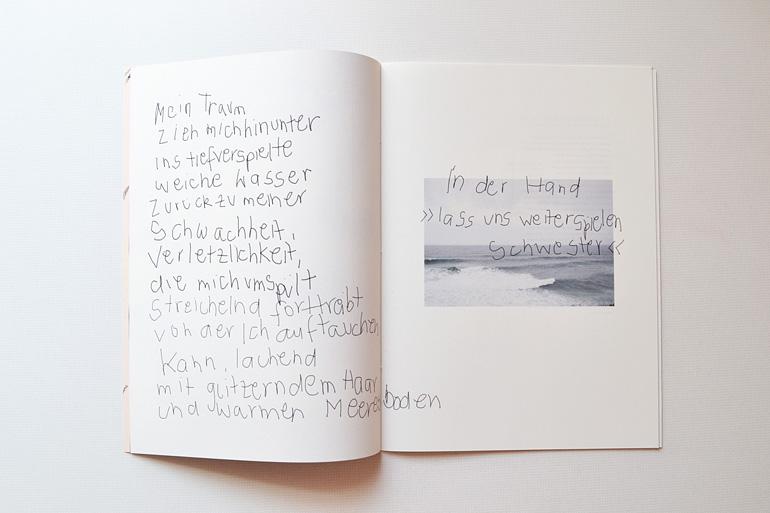 Mein Traum
zieh michhinunter
ins tiefverspielte
weiche Wasser
zurück zu meiner
Schwachheit,
Verletzlichkeit,
die mich umspült
streichelnd forttreibt
von der Ich auftauchen
kann, lachend
mit glitzerndem Haar
und warmen Meeresboden
in der Hand
»lass uns weiterspielen
Schwester«